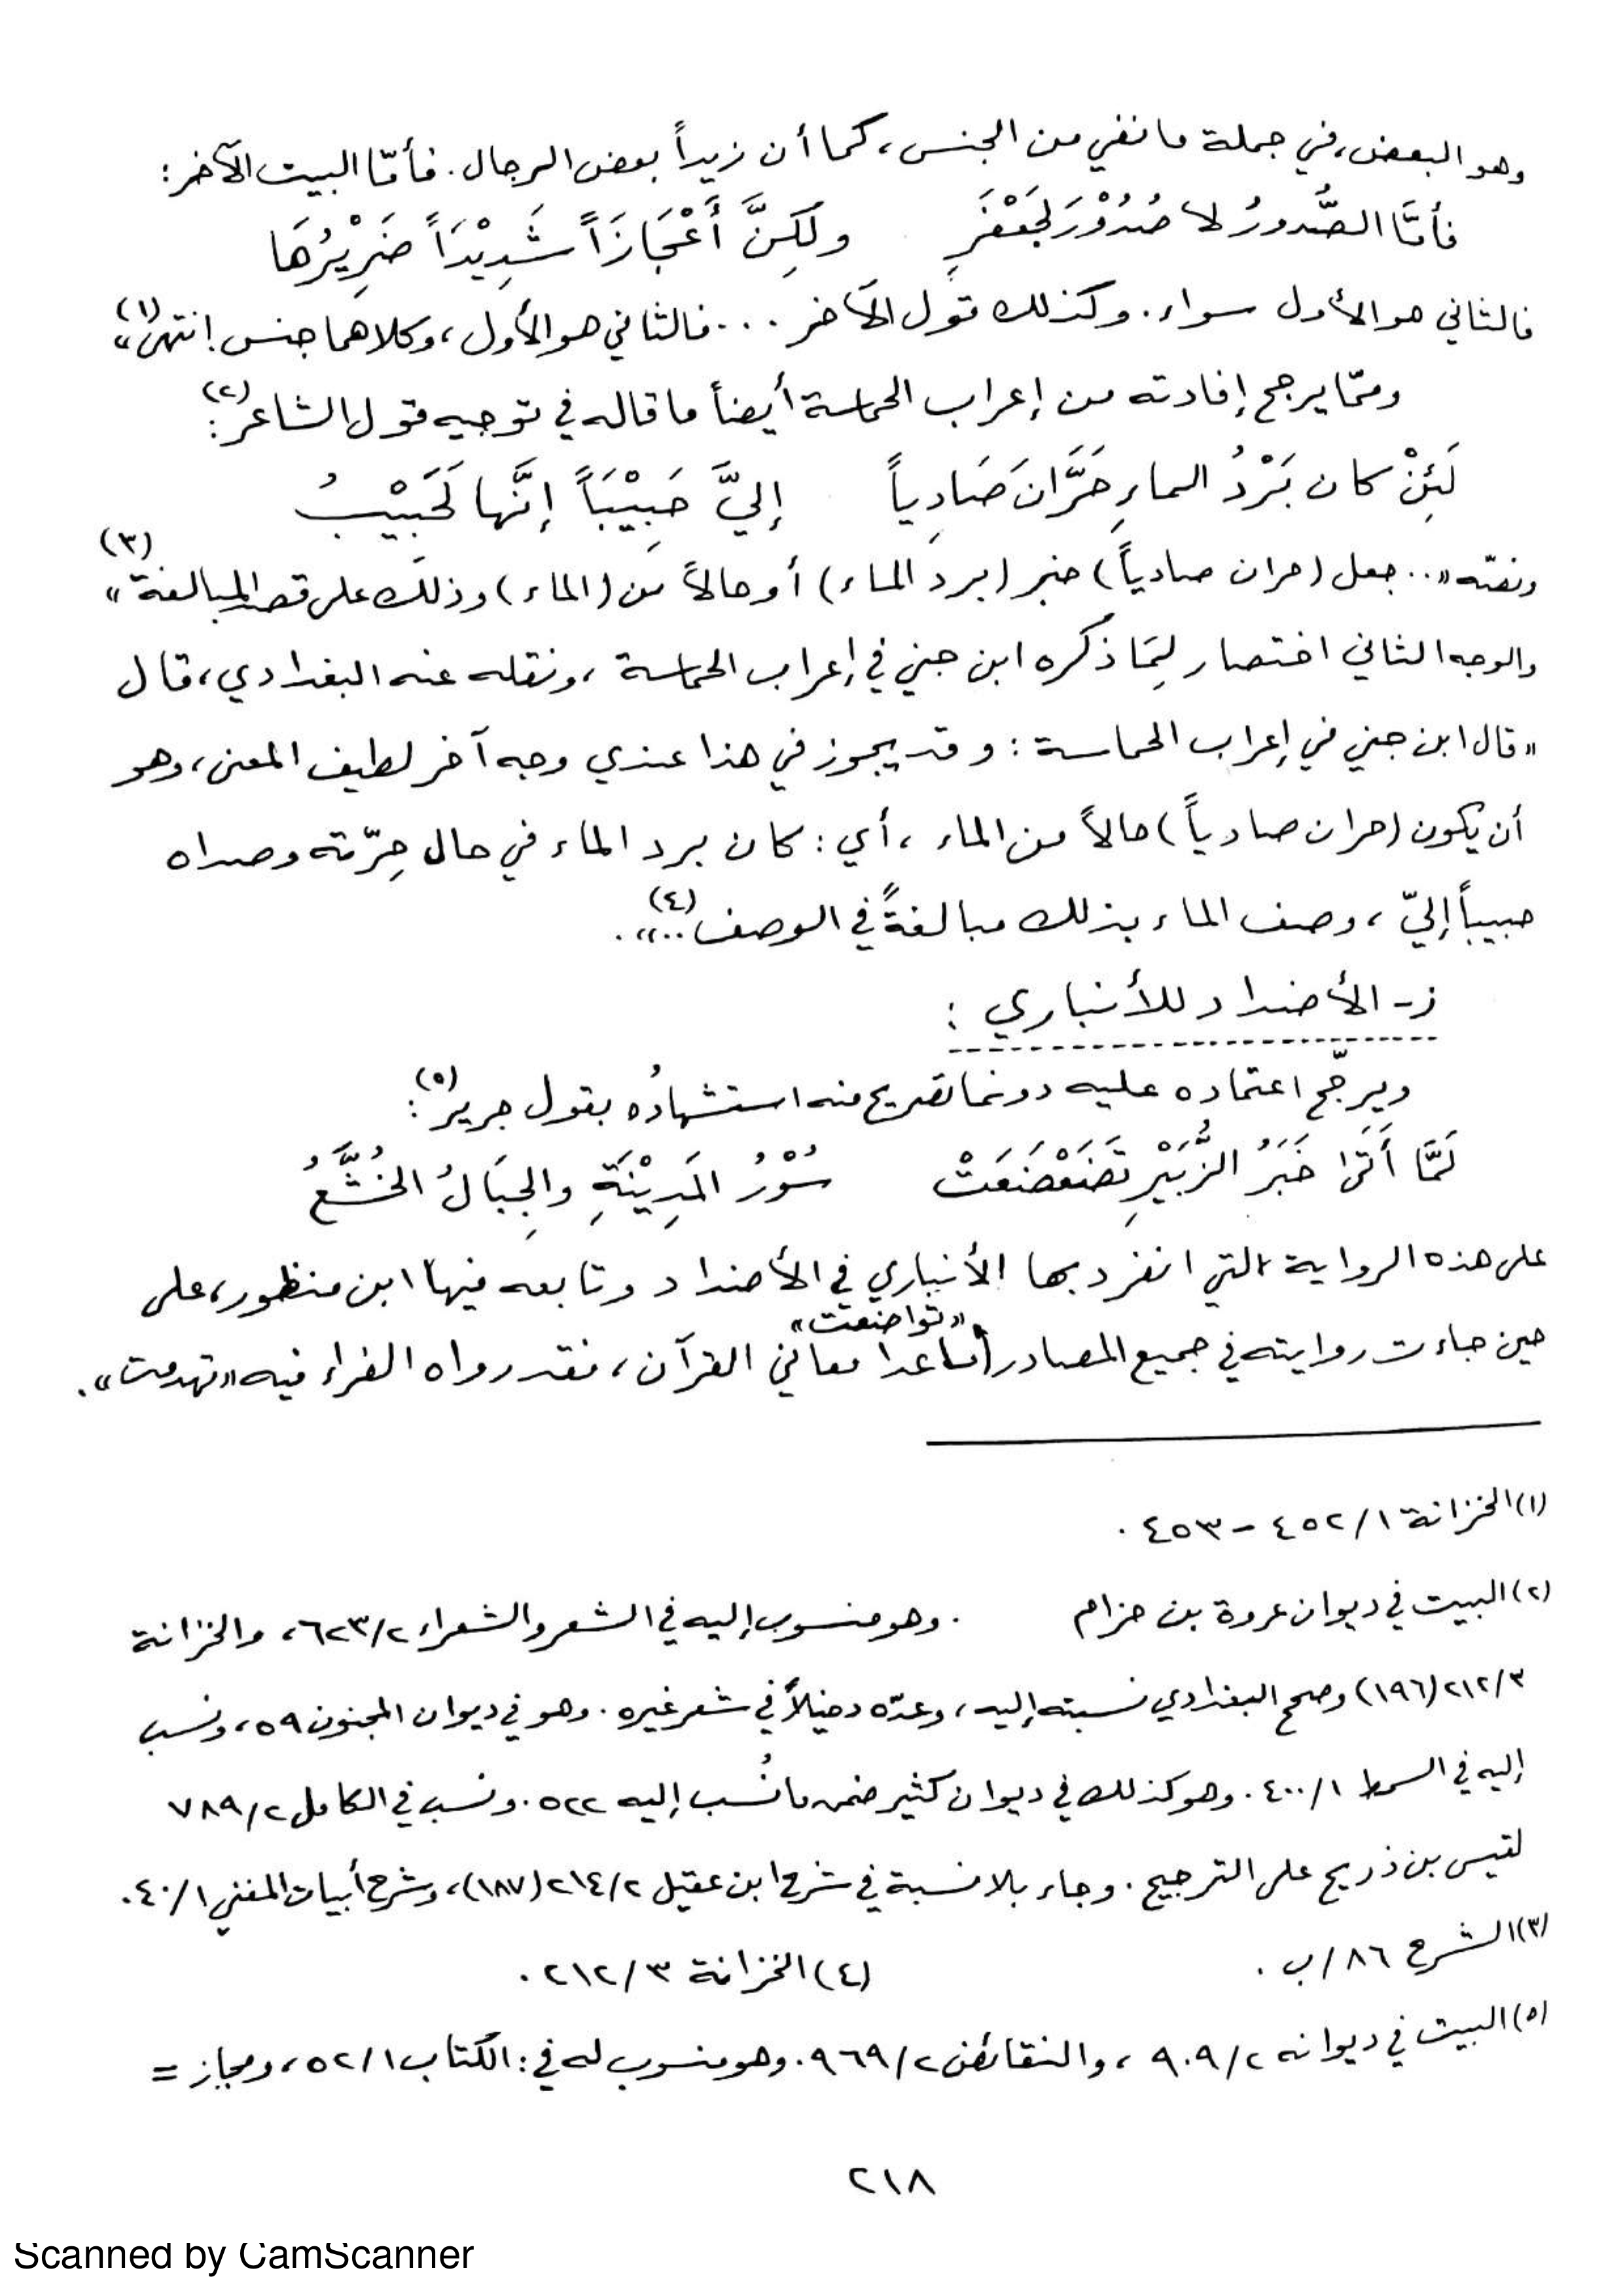 وهو البعض، في جملة ما نفي من الجنس، كما أن زيداً بعض الرجال. فأمّا البيت الآخر:
فأمَّا الصُّدورُ لا صُدُوْرَ لجَعْفَرٍ ولكِنَّ أَعْجَازَاً شَدِيْدَاً ضَرِيْرُهَا
فالثاني هو الأول سواء. وكذلك قول الآخر ... فالثاني هو الأول، وكلاهما جنس. انتهى»(١)
وممّا يرجح إفادته من إعراب الحماسة أيضاً ما قاله في توجيه قول الشاعر(٢):
لَئِنْ كان بَرْدُ الماءِ حَرَّانَ صَادِياً إليَّ حَبِيْبَاً إنَّها لَحَبِيْبُ
ونصّه «.. جعل (حران صادياً) خبر (برد الماء) أو حالاً من (الماء) وذلك على قصد المبالغة»(٣)
والوجه الثاني اختصار لِمَا ذكره ابن جني في إعراب الحماسة، ونقله عنه البغدادي، قال
«قال ابن جني في إعراب الحماسة: وقد يجوز في هذا عندي وجه آخر لطيف المعنى، وهو
أن يكون (حران صادياً) حالاً من الماء، أي: كان برد الماء في حال حِرّته وصداه
حبيباً إليّ، وصف الماء بذلك مبالغةً في الوصف ..»(٤).
ز- الأضداد للأنباري:
ويرجّح اعتماده عليه دونما تصريح منه استشهادُه بقول جرير(٥):
لَمَّا أَتَى خَبَرُ الزُّبَيْرِ تَضَعْضَعَتْ سُوْرُ المَدِيْنَةِ والجِبَالُ الخُشَّعُ
على هذه الرواية التي انفرد بها الأنباري في الأضداد وتابعه فيها ابن منظور، على
حين جاءت روايته في جميع المصادر «تواضعت» ما عدا معاني القرآن، فقد رواه الفراء فيه «تهدمت».
(١) الخزانة ١/ ٤٥٢ - ٤٥٣.
(٢) البيت في ديوان عروة بن حزام . وهو منسوب إليه في الشعر والشعراء ٢/ ٦٢٣، والخزانة
٣/ ٢١٢ (١٩٦) وصحح البغدادي نسبته إليه، وعدّه دخيلاً في شعر غيره. وهو في ديوان المجنون ٥٩، ونسب
إليه في السمط ١/ ٤٠٠. وهو كذلك في ديوان كثير ضمن ما نُسب إليه ٥٢٢. ونسب في الكامل ٢/ ٧٨٩
لقيس بن ذريح على الترجيح. وجاء بلا نسبة في شرح ابن عقيل ٢/ ٢١٤ (١٨٧)، وشرح أبيات المغني ١/ ٤٠.
(٣) الشرح ٨٦/ب.
(٤) الخزانة ٣/ ٢١٢.
(٥) البيت في ديوانه ٢/ ٩٠٩، والنقائض ٢/ ٩٦٩. وهو منسوب له في: الكتاب ١/ ٥٢، ومجاز =
٢١٨
Scanned by CamScanner